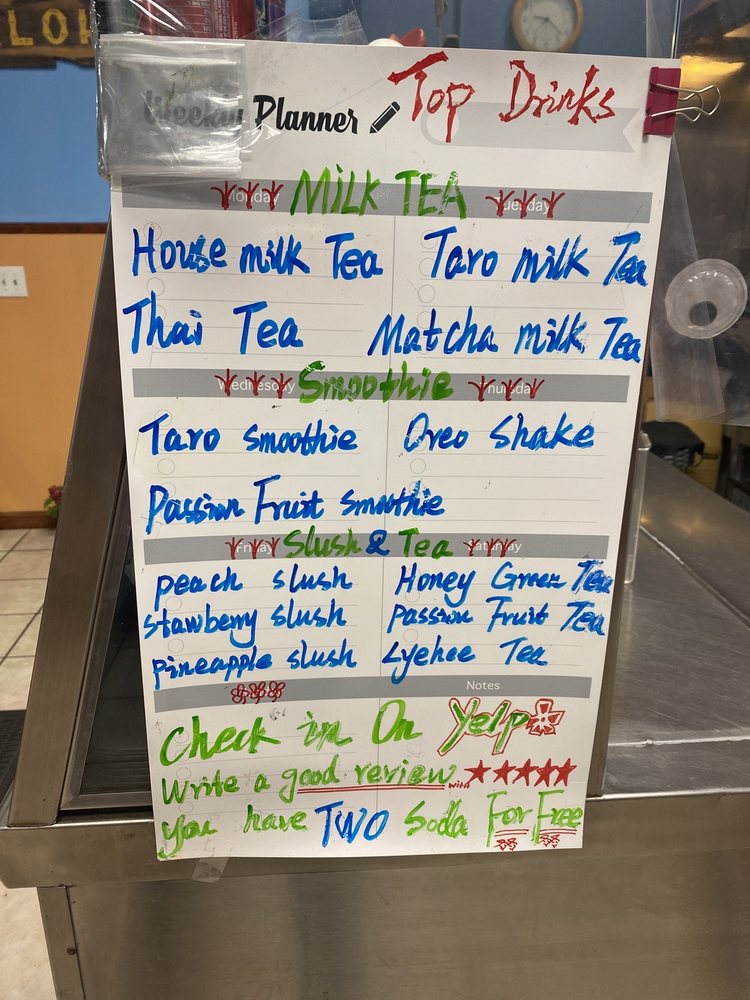 ALOH
Weekly Planner Top Drinks
Monday MiLK TEA Tuesday
House milk Tea Taro milk Tea
Thai Tea Matcha milk Tea
Wednesday Smoothie Thursday
Taro smoothie Oreo shake
Passion Fruit smoothie
Friday Slush & Tea Saturday
peach slush Honey Green Tea
stawberry slush Passion Fruit Tea
pineapple slush Lyehee Tea
Notes
Check in On Yelp
Write a good review with ★★★★★
You have TWO Soda For Free